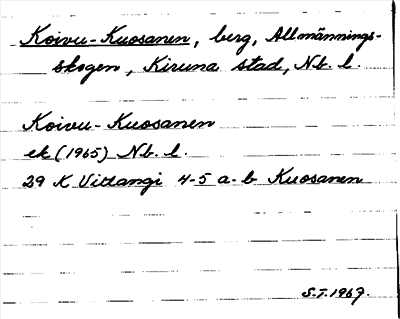 Koivu-Kuosanen, berg, Allmännings-
skogen, Kiruna stad, Nb. l.
Koivu-Kuosanen
ek (1965) Nb. l.
29 K Vittangi 4-5 a-b Kuosanen
S.T. 1967.